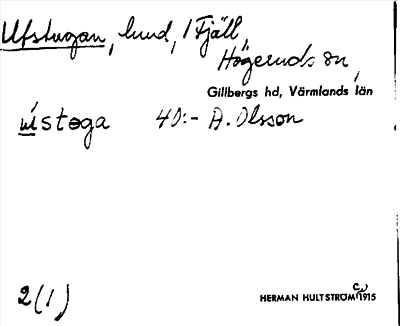 Ufstugan, lund, i Fjäll,
Högeruds sn,
Gillbergs hd, Värmlands län
ùstøga 40:- A. Olsson
2(1)
HERMAN HULTSTRÖM 1915